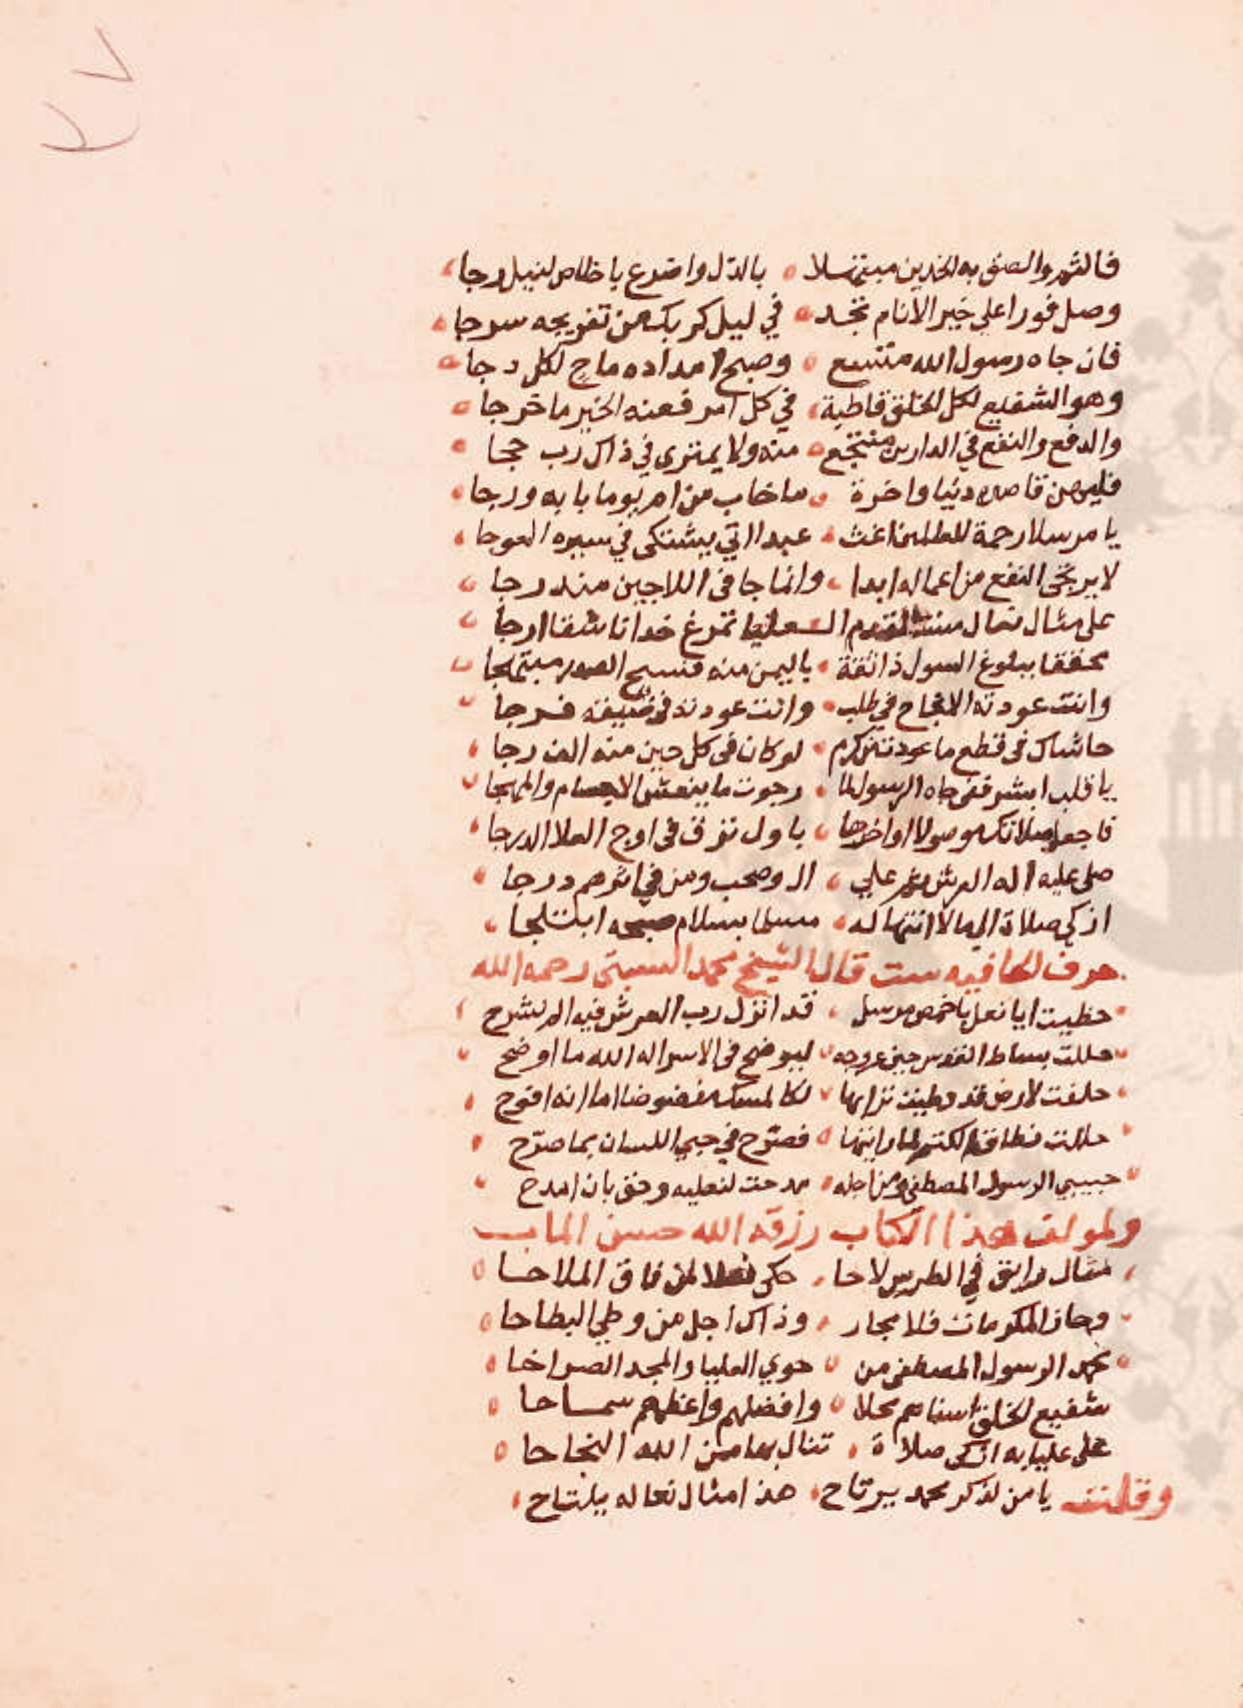 فالثم والصق به الخدين مبتهلا بالذل واضرع باخلاص لنيل رجا
وصل فورا على خير الانام تجد في ليل كربك من تفريجه سرجا
فان جاه رسول الله متسع وصبح امداده ماح لكل دجا
وهو الشفيع لكل الخلق قاطبة في كل امر فعنه الخير ما خرجا
والدفع والنفع في الدارين منتجع منه ولا يمتري في ذاك رب حجا
فليهن قاصده دنيا واخرة ما خاب من ام يوما بابه ورجا
يا مرسلا رحمة للعالمين اغث عبدا اتي يشتكي في سيره العوجا
لا يرتجى النفع من اعماله ابدا وانما جا في اللاجين منك رجا
على مثال نعال القدم تمرغ خدا ناشقا ارجا
محققا ببلوغ السول ذا ثقة باليمن منه فسيح الصدر مبتهجا
وانت عودته الانجاح في طلب وانت عودته في ضيقه فرجا
حاشاك في قطع ما عودت من كرم لو كان في كل حين منه الف رجا
يا قلب ابشر ففي جاه الرسول لما رجوت ما ينعش الاجسام والمهجا
فاجعل صلاتك موصولا اواخرها باول ترق في اوج العلا الدرجا
صلى عليه اله العرش ثم علي ال وصحب ومن في اثرهم درجا
ازكي صلاة الى ما لا انتها له مسلما بسلام صبحه ابتلجا
حرف الحا فيه ست قال الشيخ محمد السبتي رحمه الله
حظيت ايا نعل باخمص مرسل قد انزل رب العرش فيه الم نشرح
حللت بساط القدس حين عروجه ليوضح في الاسرا له الله ما اوضح
حلفت لارض قد وطيت ترابها لكالمسك مفضوضا اما انه افوح
حللت نطاق الكتم لما رايتها فصرح في حبي اللسان بما صرح
حبيبي الرسول المصطفى من اجله مدحت لنعليه وحق بان امدح
ولمولف هذا الكتاب رزقه الله حسن الماب
مثال رايق في الطرس لاحا حكى نعلا لمن فاق الملاحا
وحاز المكرمات فلا يجار وذاك اجل من وطي البطاحا
محمد الرسول المصطفى من حوي العليا والمجد الصراحا
شفيع الخلق اسناهم محلا وافضلهم واعظمهم سماحا
على عليايه ازكى صلاة تنال بها من الله النجاحا
وقلت يا من لذكر محمد يرتاح هذا مثال نعاله يلتاح